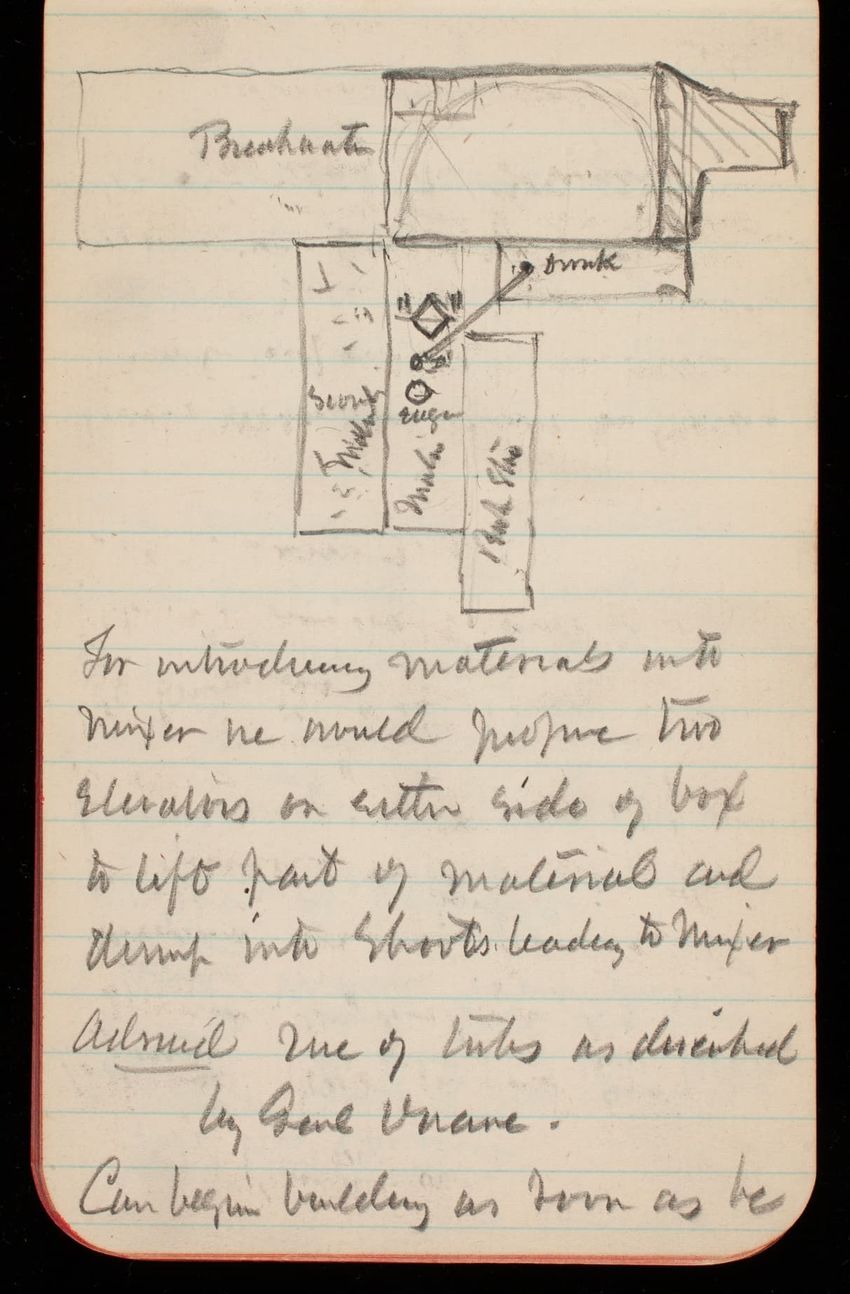 Breakwater
Engin
For introducing materials into
Mixer he would propose two
Elevators on either side of box
to lift part of material and
dump into Shoots leading to Mixer
Advised use of tubs as described
by Genl Duane.
Can begin building as soon as he